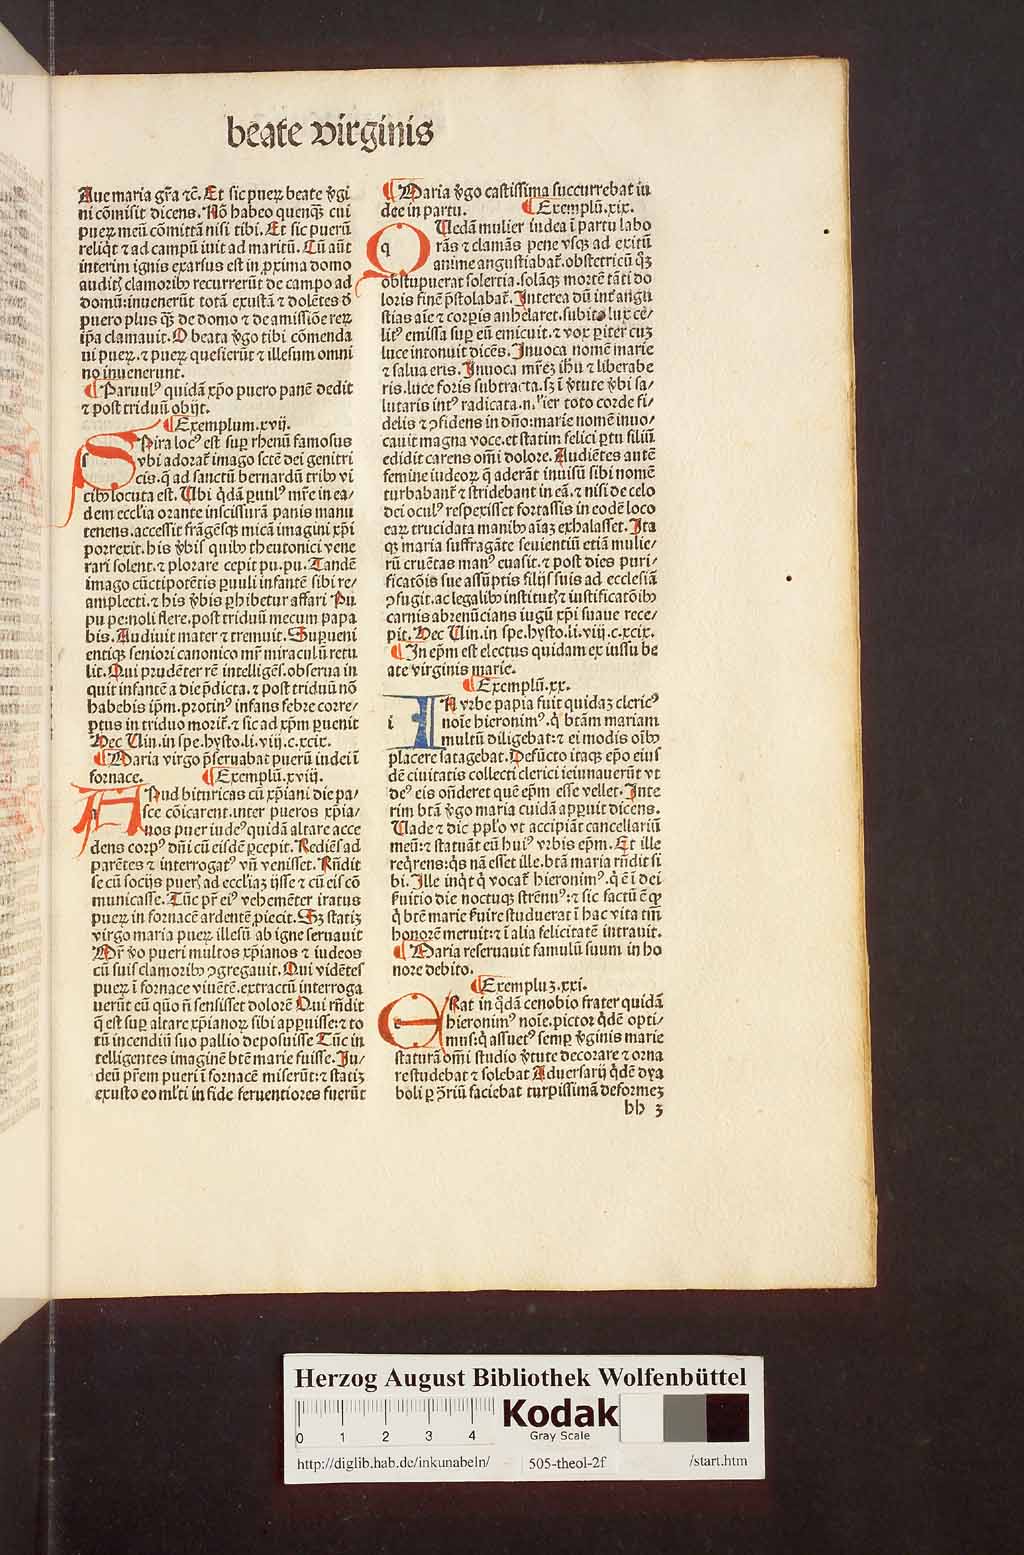 beate virginis
Aue maria gr̃a ⁊c̃. Et sic pueꝝ beate v̓gi
ni cõmisit dicens. Nõ habeo quenqꝫ cui
pueꝝ meũ cõmittã nisi tibi. Et sic puerũ
reliq̇t ⁊ ad campũ iuit ad maritũ. Cũ aũt
interim ignis exarsus est in ꝓxima domo
auditꝭ clamoribꝰ recurrerũt de campo ad
domũ: inuenerũt totã exustã ⁊ dolẽtes ď
puero plus qꝫ̃ de domo ⁊ de amissiõe reꝝ
ip̃a clamauit. O beata v̓go tibi cõmenda
ui pueꝝ. ⁊ pueꝝ quesierũt ⁊ illesum omni
no inuenerunt.
¶ Paruulꝰ quidã xp̃o puero panẽ dedit
⁊ post triduũ obijt.
¶ Exemplum.xvij.
SPira locꝰ est suꝑ rhenũ famosus
vbi adorat̃ imago sctẽ dei genitri
cis. q̃ ad sanctũ bernardũ tribꝰ vi
cibꝰ locuta est. Ubi q̇dã ꝑuulꝰ mr̃e in ea⸗
dem eccl̃ia orante inscissurã panis manu
tenens. accessit frãgẽsqꝫ micã imagini xp̃i
porrexit. his v̓bis quibꝰ theutonici vene
rari solent. ⁊ plorare cepit pu. pu. Tandẽ
imago cũctipotẽtis ꝑuuli infantẽ sibi re⸗
amplecti. ⁊ his v̓bis ꝑhibetur affari Pu
pu pe: noli flere. post triduũ mecum papa
bis. Audiuit mater ⁊ tremuit. Supueni
entiqꝫ seniori canonico mr̃ miraculũ retu
lit. Qui prudẽter rẽ intelligẽs. obserua in
quit infantẽ a die p̃dicta. ⁊ post triduũ nõ
habebis ip̃m. protinꝰ infans febre corre⸗
ptus in triduo morit̃. ⁊ sic ad xp̃m ꝑuenit
Hec Uin. in spe. hysto. li. viij. c. xcix.
¶ Maria virgo p̃seruabat puerũ iudei ĩ
fornace. ¶ Exemplũ.xviij.
APud bituricas cũ xp̃iani die pa⸗
sce cõicarent. inter pueros xp̃ia⸗
nos puer iudeꝰ quidã altare acce
dens corpꝰ dñi cũ eisdẽ ꝑcepit. Rediẽs ad
parẽtes ⁊ interrogatꝰ vñ venisset. Rñdit
se cũ socijs puerꝭ ad eccl̃iaꝫ ijsse ⁊ cũ eis cõ
municasse. Tũc pr̃ eiꝰ vehemẽter iratus
pueꝝ in fornacẽ ardentẽ ꝓiecit. Sꝫ statiꝫ
virgo maria pueꝝ illesũ ab igne seruauit
Mr̃ v̓o pueri multos xp̃ianos ⁊ iudeos
cũ suis clamoribꝰ ꝯgregauit. Qui vidẽtes
pueꝝ ĩ fornace viuẽtẽ. extractũ interroga
uerũt eũ quõ ñ sensisset dolorẽ Qui rñdit
q̃ est suꝑ altare xp̃ianoꝝ sibi apꝑuisse: ⁊ to
tũ incendiũ suo pallio deposuisse Tũc in
telligentes imaginẽ btẽ marie fuisse. Iu⸗
deũ pr̃em pueri ĩ fornacẽ miserũt: ⁊ statiꝫ
exusto eo ml̃ti in fide feruentiores fuerũt
¶ Maria v̓go castissima succurrebat iu
dee in partu. ¶ Exemplũ.xix.
QUedã mulier iudea ĩ partu labo
rãs ⁊ clamãs pene vsqꝫ ad exitũ
anime angustiabat̃. obstetricũ qꝫ
obstupuerat solertia. solãqꝫ mortẽ tãti do
loris finẽ p̃stolabat̃. Interea dũ int̓ angu
stias aĩe ⁊ corꝑis anhelaret. subito lux ce⸗
litꝰ emissa suꝑ eũ emicuit. ⁊ vox ꝑiter cuꝫ
luce intonuit dicẽs. Inuoca nomẽ marie
⁊ salua eris. Inuoca mr̃eꝫ ihũ ⁊ liberabe
ris. luce foris subtracta. sꝫ ĩ v̓tute v̓bi sa⸗
lutaris intꝰ radicata. toto corde fi⸗
delis ⁊ ꝯfidens in dño: marie nomẽ inuo⸗
cauit magna voce. et statim felici ꝑtu filiũ
edidit carens om̃i dolore. Audiẽtes autẽ
femine iudeoꝝ q̃ aderãt inuisũ sibi nomẽ
turbabant̃ ⁊ stridebant in eã. ⁊ nisi de celo
dei oculꝰ respexisset fortassis in eodẽ loco
eaꝝ trucidata manibꝰ aĩaꝫ exhalasset. Ita
qꝫ maria suffragãte seuientiũ etiã mulie⸗
rũ cruẽtas manꝰ euasit. ⁊ post dies puri⸗
ficatõis sue assũptis filijs suis ad ecclesiã
ꝯfugit. ac legalibꝰ institutꝭ ⁊ iustificatõibꝰ
carnis abrenũcians iugũ xp̃i suaue rece⸗
pit. Hec Uin. in spe. hysto. li. viij. c. xcix.
¶ In ep̃m est electus quidam ex iussu be
ate virginis marie.
¶ Exemplũ.xx.
IN vrbe papia fuit quidaꝫ clericꝰ
noĩe hieronimꝰ. q̇ btãm mariam
multũ diligebat: ⁊ ei modis oĩbꝰ
placere satagebat. Defũcto itaqꝫ ep̃o eius
dẽ ciuitatis collecti clerici ieiunauerũt vt
deꝰ eis oñderet quẽ ep̃m esse vellet. Inte
rim btã v̓go maria cuidã apꝑuit dicens.
Uade ⁊ dic pplo vt accipiãt cancellariũ
meũ: ⁊ statuãt eũ huiꝰ vrbis ep̃m. Et ille
req̇rens: q̇s nã esset ille. btã maria rñdit si
bi. Ille inq̇t q̇ vocat̃ hieronimꝰ. q̇ ẽ ĩ dei
ẜuitio die noctuqꝫ strẽnuꝰ: ⁊ sic factũ ẽ ꝙ
q̇ btẽ marie ẜuire studuerat ĩ hac vita tm̃
honorẽ meruit: ⁊ ĩ alia felicitatẽ intrauit.
¶ Maria reseruauit famulũ suum in ho
nore debito.
¶ Exempluꝫ.xxi.
ERat in q̇dã cenobio frater quidã
hieronimꝰ noĩe. pictor q̇dẽ opti⸗
mus: q̇ assuetꝰ semꝑ v̓ginis marie
staturã om̃i studio v̓tute decorare ⁊ orna
re studebat ⁊ solebat Aduersarij q̇dẽ dya
boli ꝑ ꝯ̃riũ faciebat turpissimã deformeꝫ
bb 3
Herzog August Bibliothek Wolfenbüttel
0 1 2 3 4
Kodak
Gray Scale
http://diglib.hab.de/inkunabeln/ 505-theol-2f /start.htm